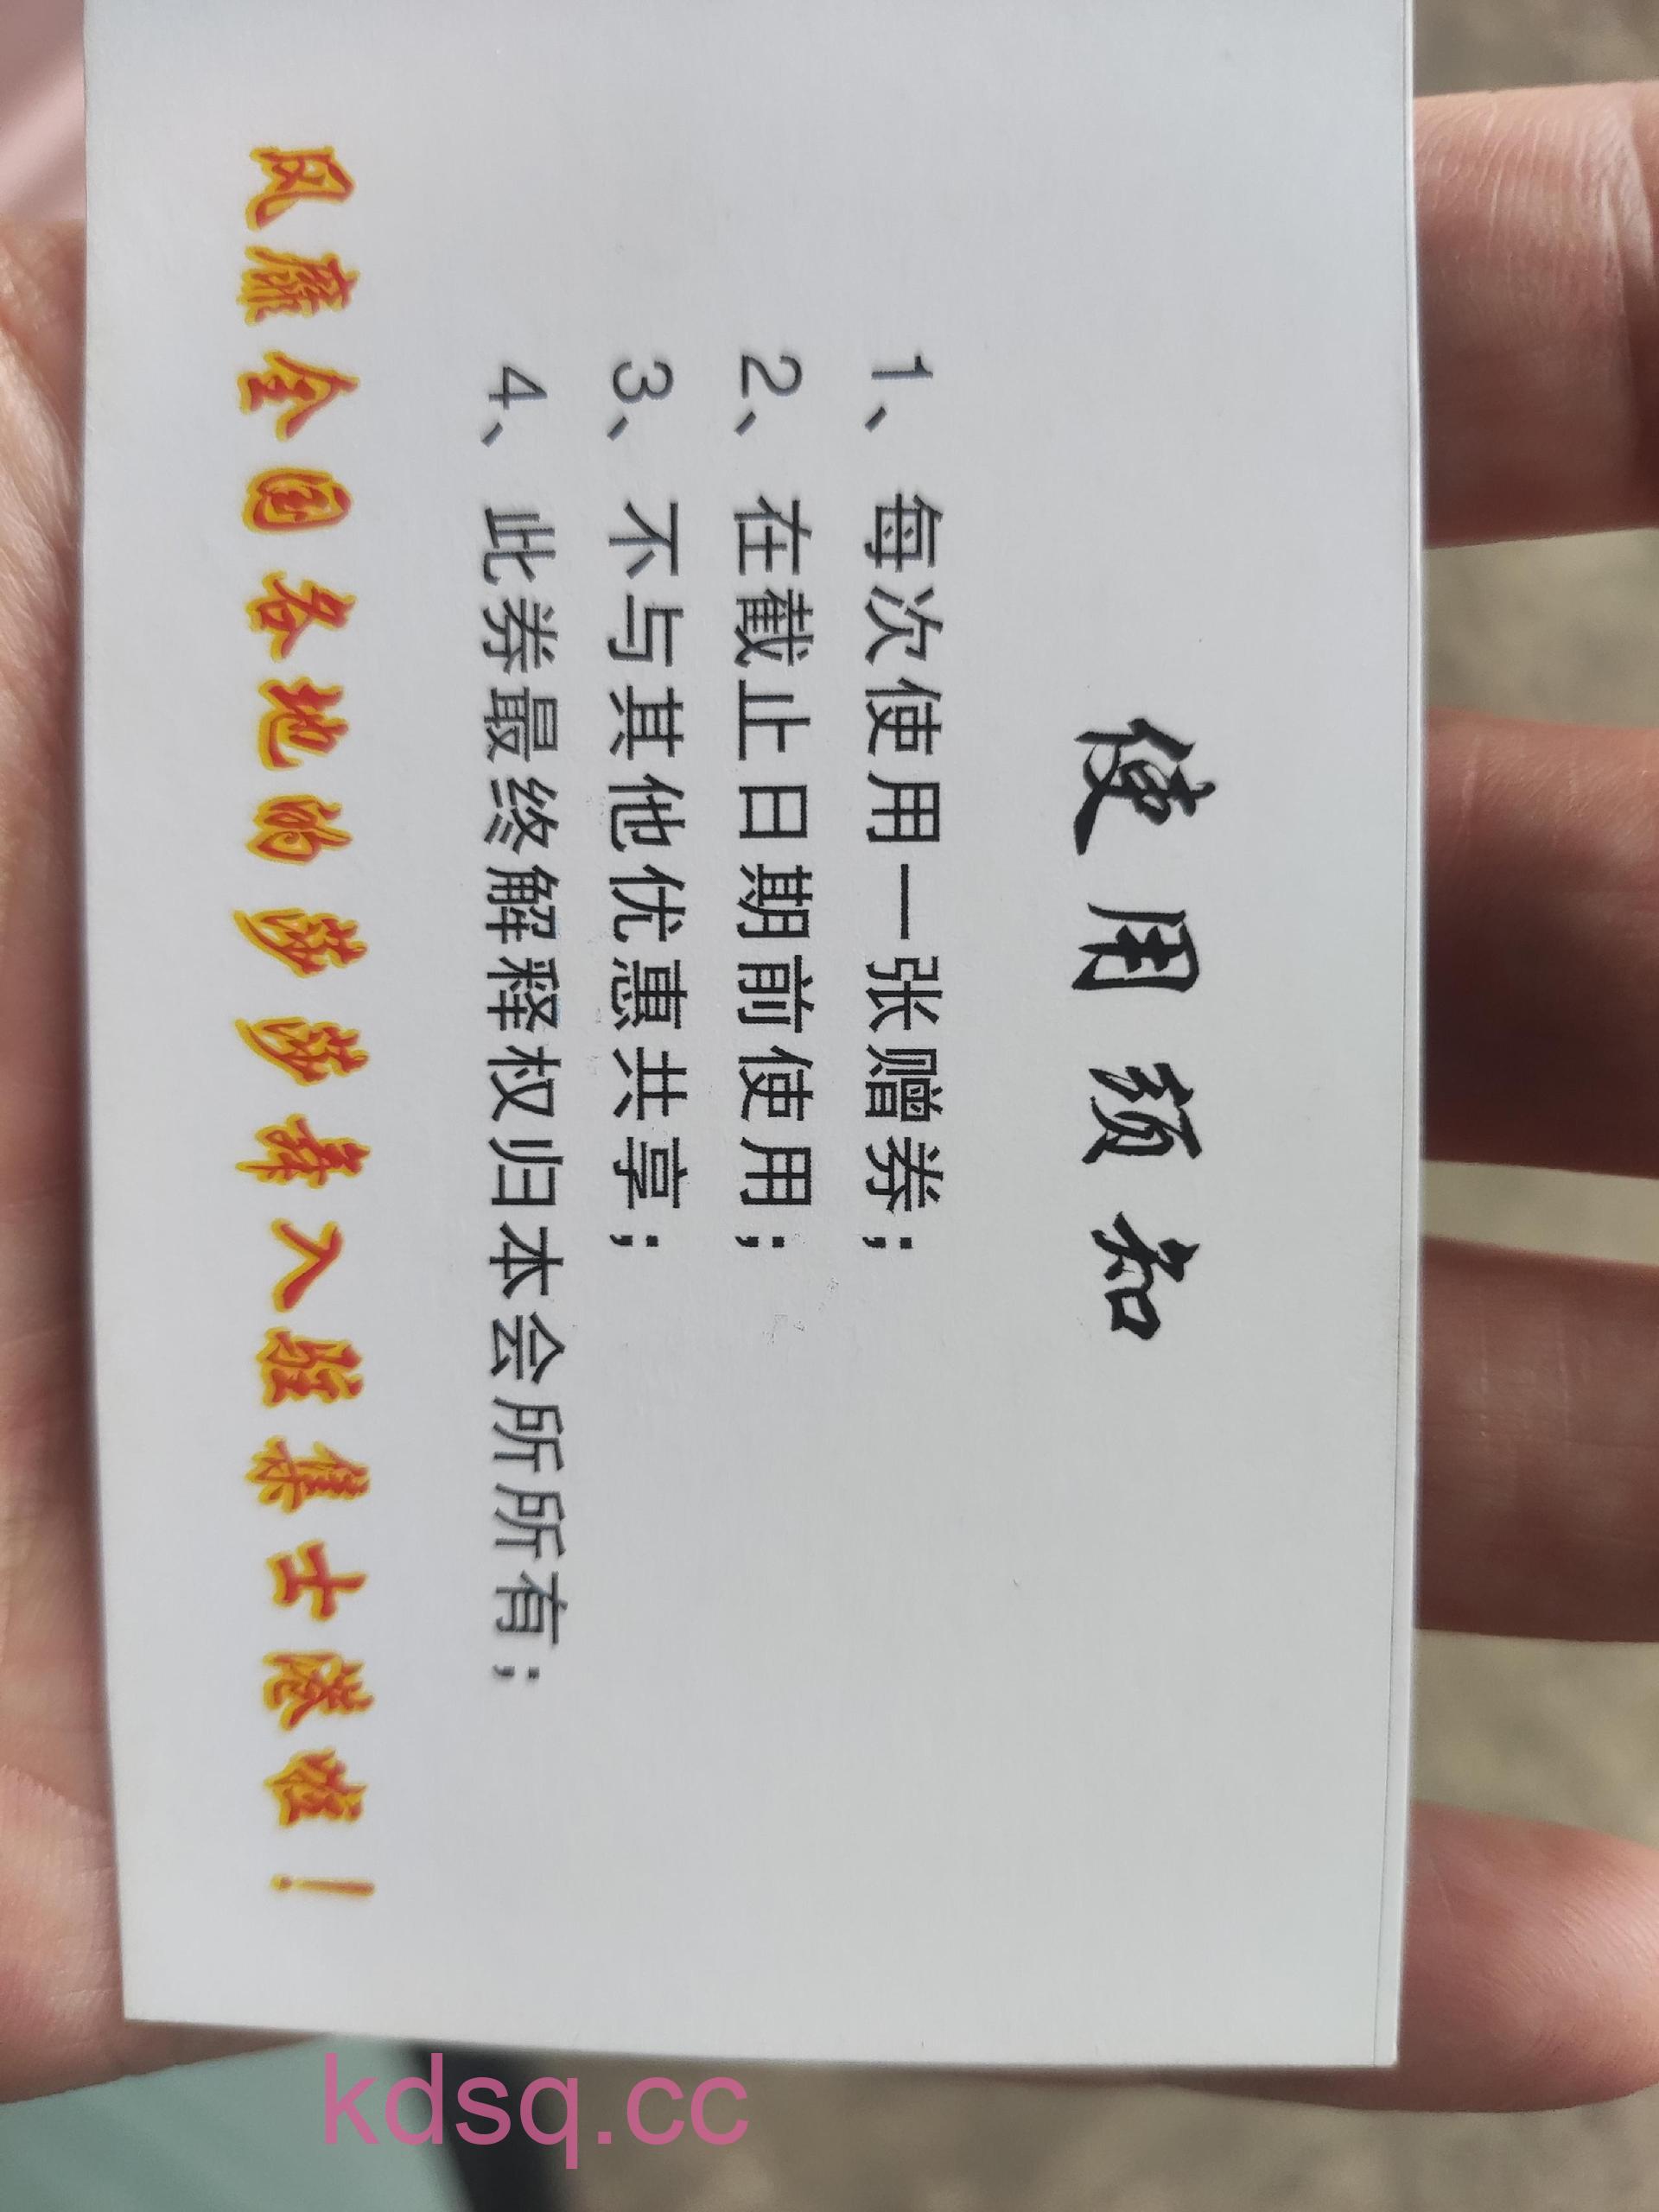 使用须知
1、每次使用一张赠券；
2、在截止日期前使用；
3、不与其他优惠共享；
4、此券最终解释权归本会所所有；
风靡全国各地的莎莎舞入驻集士港啦！
kdsq.cc